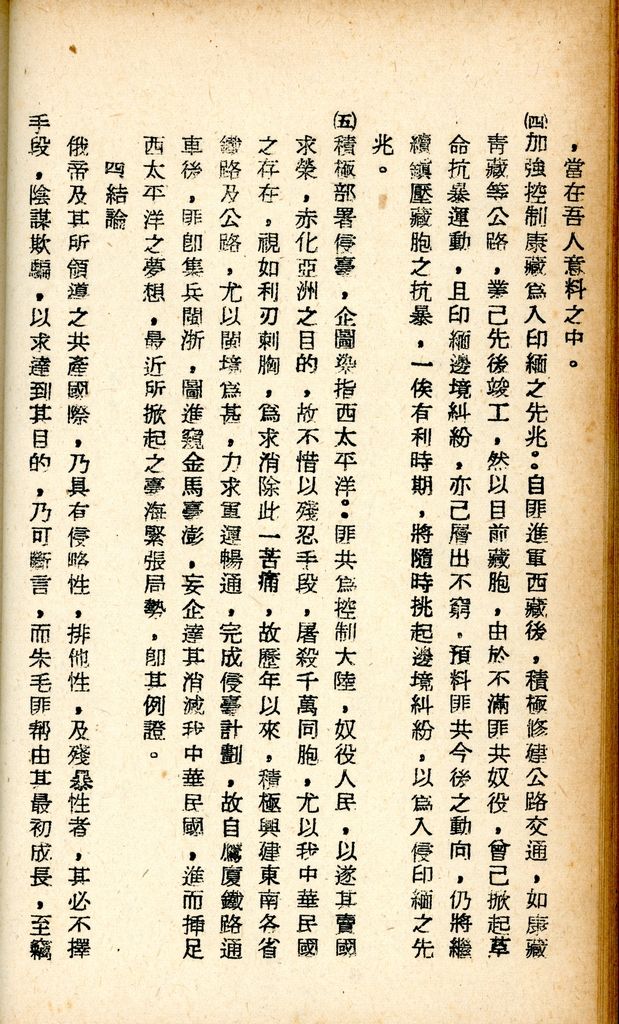 ，當在吾人意料之中。
㈣加強控制康藏為入印緬之先兆。：自匪進軍西藏後，積極修建公路交通，如康藏
青藏等公路，業已先後竣工，然以目前藏胞，由於不滿匪共奴役，曾已掀起革
命抗暴運動，且印緬邊境糾紛，亦已層出不窮，預料匪共今後之動向，仍將繼
續鎮壓藏胞之抗暴，一俟有利時期，將隨時挑起邊境糾紛，以為入侵印緬之先
兆。
㈤積極部署侵臺，企圖染指西太平洋。：匪共為控制大陸，奴役人民，以遂其賣國
求榮，赤化亞洲之目的，故不惜以殘忍手段，屠殺千萬同胞，尤以我中華民國
之存在，視如利刃刺胸，為求消除此一苦痛，故歷年以來，積極興建東南各省
鐵路及公路，尤以閩境為甚，力求軍運暢通，完成侵臺計劃，故自鷹廈鐵路通
車後，匪即集兵閩浙，圖進窺金馬臺澎，妄企達其消滅我中華民國，進而插足
西太平洋之夢想，最近所掀起之臺海緊張局勢，即其例證。
四結論
俄帝及其所領導之共產國際，乃具有侵略性，排他性，及殘暴性者，其必不擇
手段，陰謀欺騙，以求達到其目的，乃可斷言，而朱毛匪幫由其最初成長，至竊